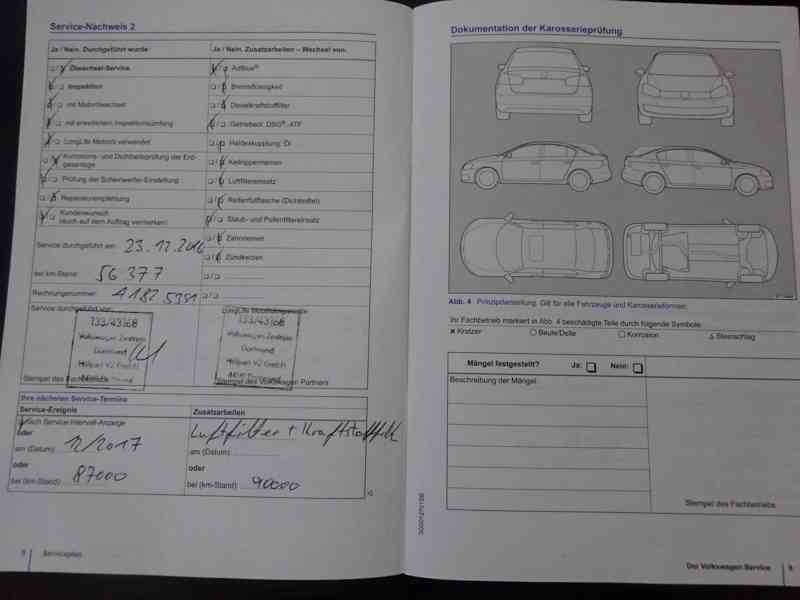 Service-Nachweis 2
Ja / Nein. Durchgeführt wurde:
Ja / Nein. Zusatzarbeiten – Wechsel von:
Ölwechsel-Service
AdBlue®
Inspektion
Bremsflüssigkeit
mit Motorölwechsel
Dieselkraftstofffilter
mit erweitertem Inspektionsumfang
Getriebeöl: DSG®, ATF
LongLife Motoröl verwendet
Haldexkupplung: Öl
Korrosions- und Dichtheitsprüfung der Erd-
gasanlage
Keilrippenriemen
Prüfung der Scheinwerfer-Einstellung
Luftfiltereinsatz
Reparaturempfehlung
Reifenfüllflasche (Dichtmittel)
Kundenwunsch
(auch auf dem Auftrag vermerken)
Staub- und Pollenfiltereinsatz
Zahnriemen
Service durchgeführt am: 23.12.2016
Zündkerzen
bei km-Stand: 56 377
Rechnungsnummer: 4182 5391
Service durchgeführt von:
LongLife Mobilitätsgarantie
133/43168
Volkswagen Zentrum
Dortmund
Hülpert VZ GmbH
133/43168
Volkswagen Zentrum
Dortmund
Hülpert VZ GmbH
Stempel des Fachbetriebs
Stempel des Volkswagen Partners
Ihre nächsten Service-Termine
Service-Ereignis
Zusatzarbeiten
nach Service-Intervall-Anzeige
Luftfilter + Kraftstofffilt
oder
am (Datum): 12/2017
am (Datum):
oder
oder
bei (km-Stand): 87000
bei (km-Stand): 90000
8 Serviceplan
Dokumentation der Karosserieprüfung
Abb. 4 Prinzipdarstellung. Gilt für alle Fahrzeuge und Karosserieformen.
Ihr Fachbetrieb markiert in Abb. 4 beschädigte Teile durch folgende Symbole:
× Kratzer
○ Beule/Delle
□ Korrosion
△ Steinschlag
Mängel festgestellt? Ja: Nein:
Beschreibung der Mängel
Stempel des Fachbetriebs
Der Volkswagen Service 9